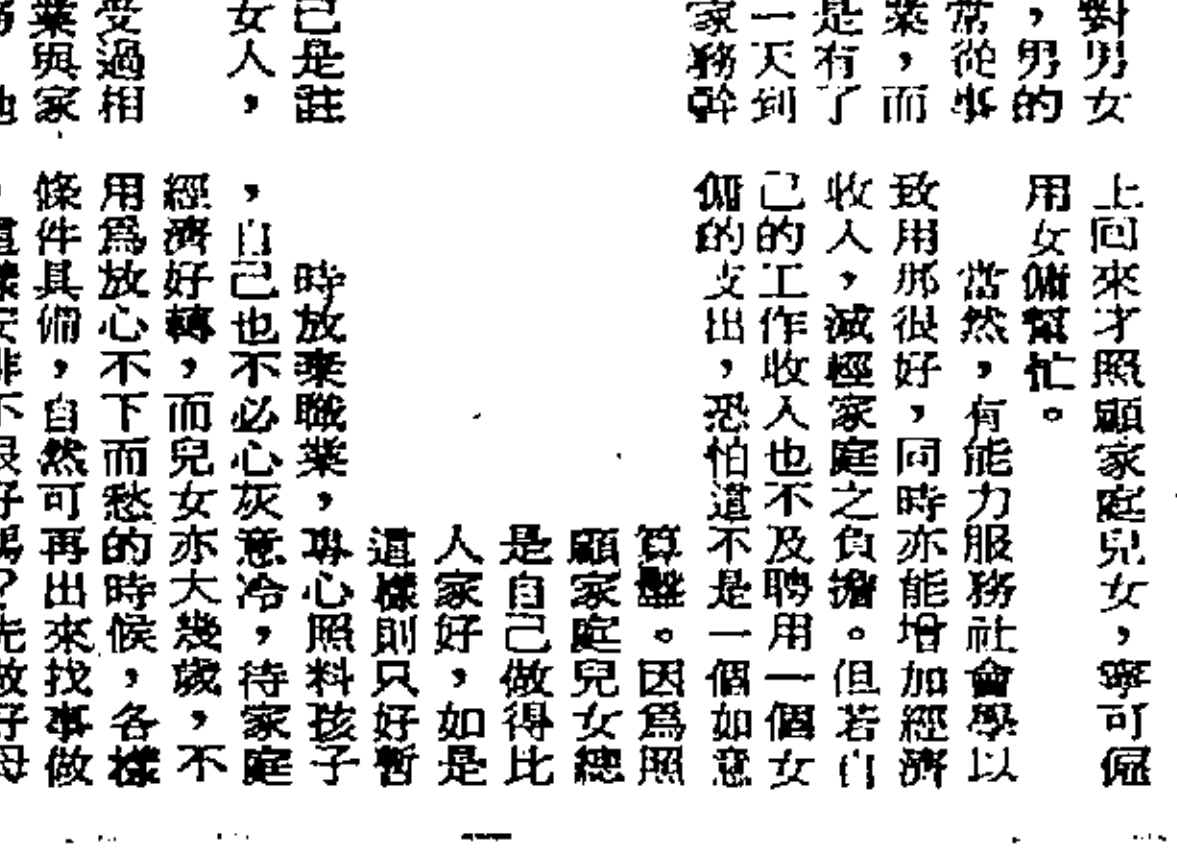 對男女
，男的
常從事
業，而
是有了
一天到
家務幹
己是註
女人，
受過相
業與家
上回來才照顧家庭兒女，寧可僱
用女傭幫忙。
當然，有能力服務社會學以
致用那很好，同時亦能增加經濟
收入，減輕家庭之負擔。但若自
己的工作收入也不及聘用一個女
傭的支出，恐怕這不是一個如意
算盤。因爲照
顧家庭兒女總
是自己做得比
人家好，如是
這樣則只好暫
時放棄職業，專心照料孩子
，自己也不必心灰意冷，待家庭
經濟好轉，而兒女亦大幾歲，不
用爲放心不下而愁的時候，各樣
條件具備，自然可再出來找事做